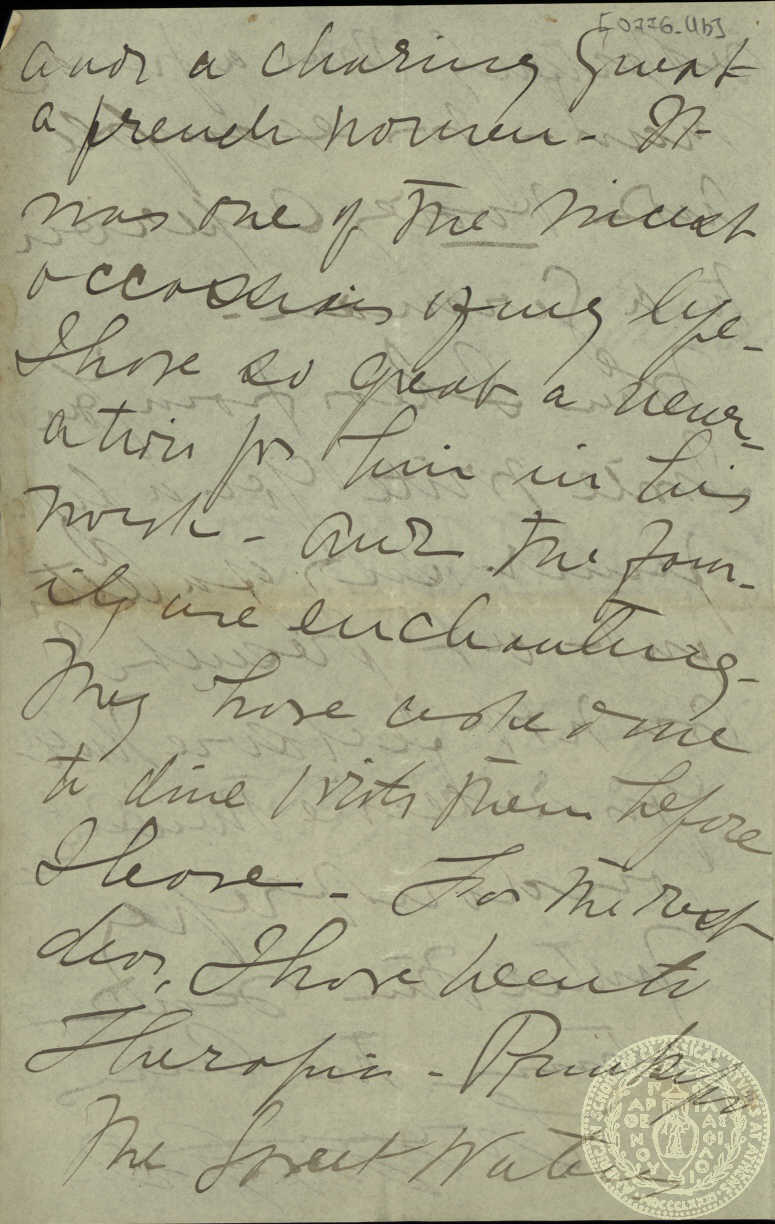 and a charming guest
a french women - It
was one of the nicest
occassions of my life -
I have so great a vener-
ation for him in his
work - and the fam-
ily are enchanting -
They have asked me
to dine with them before
I leave - For the rest
dear, I have been to
Therapia - Prinkipo
The Sweet Waters